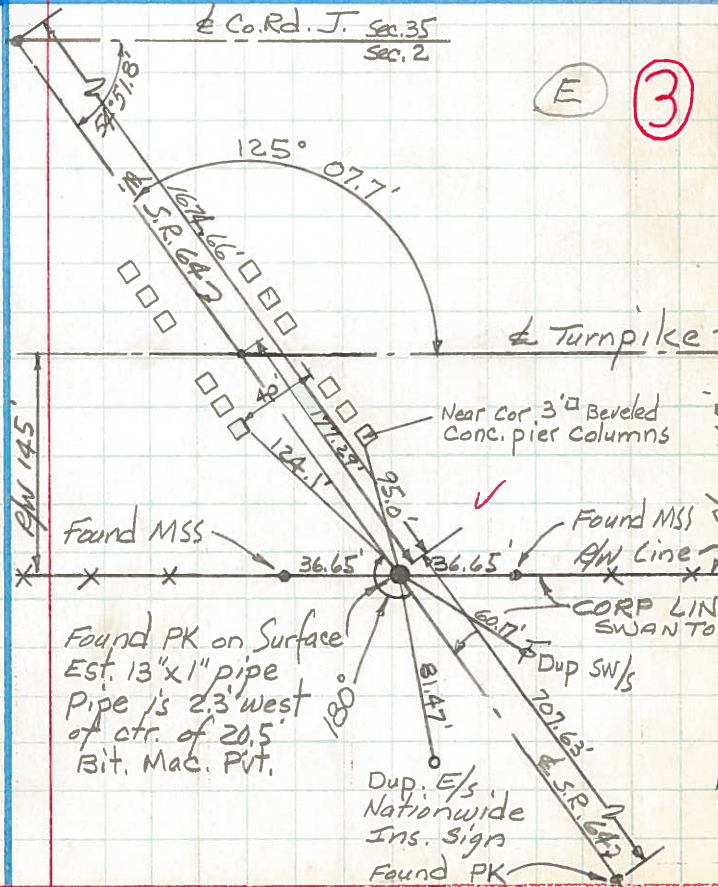 ℄ Co. Rd. J. Sec. 35
Sec. 2
E
3
54°51.8'
125° 07.7'
1674.66'
℄ S.R. 642
℄ Turnpike
40'
177.29'
124.1'
95.0'
Near Cor 3'□ Beveled
Conc. pier Columns
R/W 145'
Found MSS
36.65'
36.65'
Found MSS
R/W Line
CORP LIN
SWANTO
Found PK on Surface
Est. 13"x1" pipe
Pipe is 2.3' west
of ctr. of 20.5'
Bit. Mac. Pvt.
180°
81.47'
60.7'
Dup SW/s
707.63'
℄ S.R. 642
Dup. E/s
Nationwide
Ins. Sign
Found PK